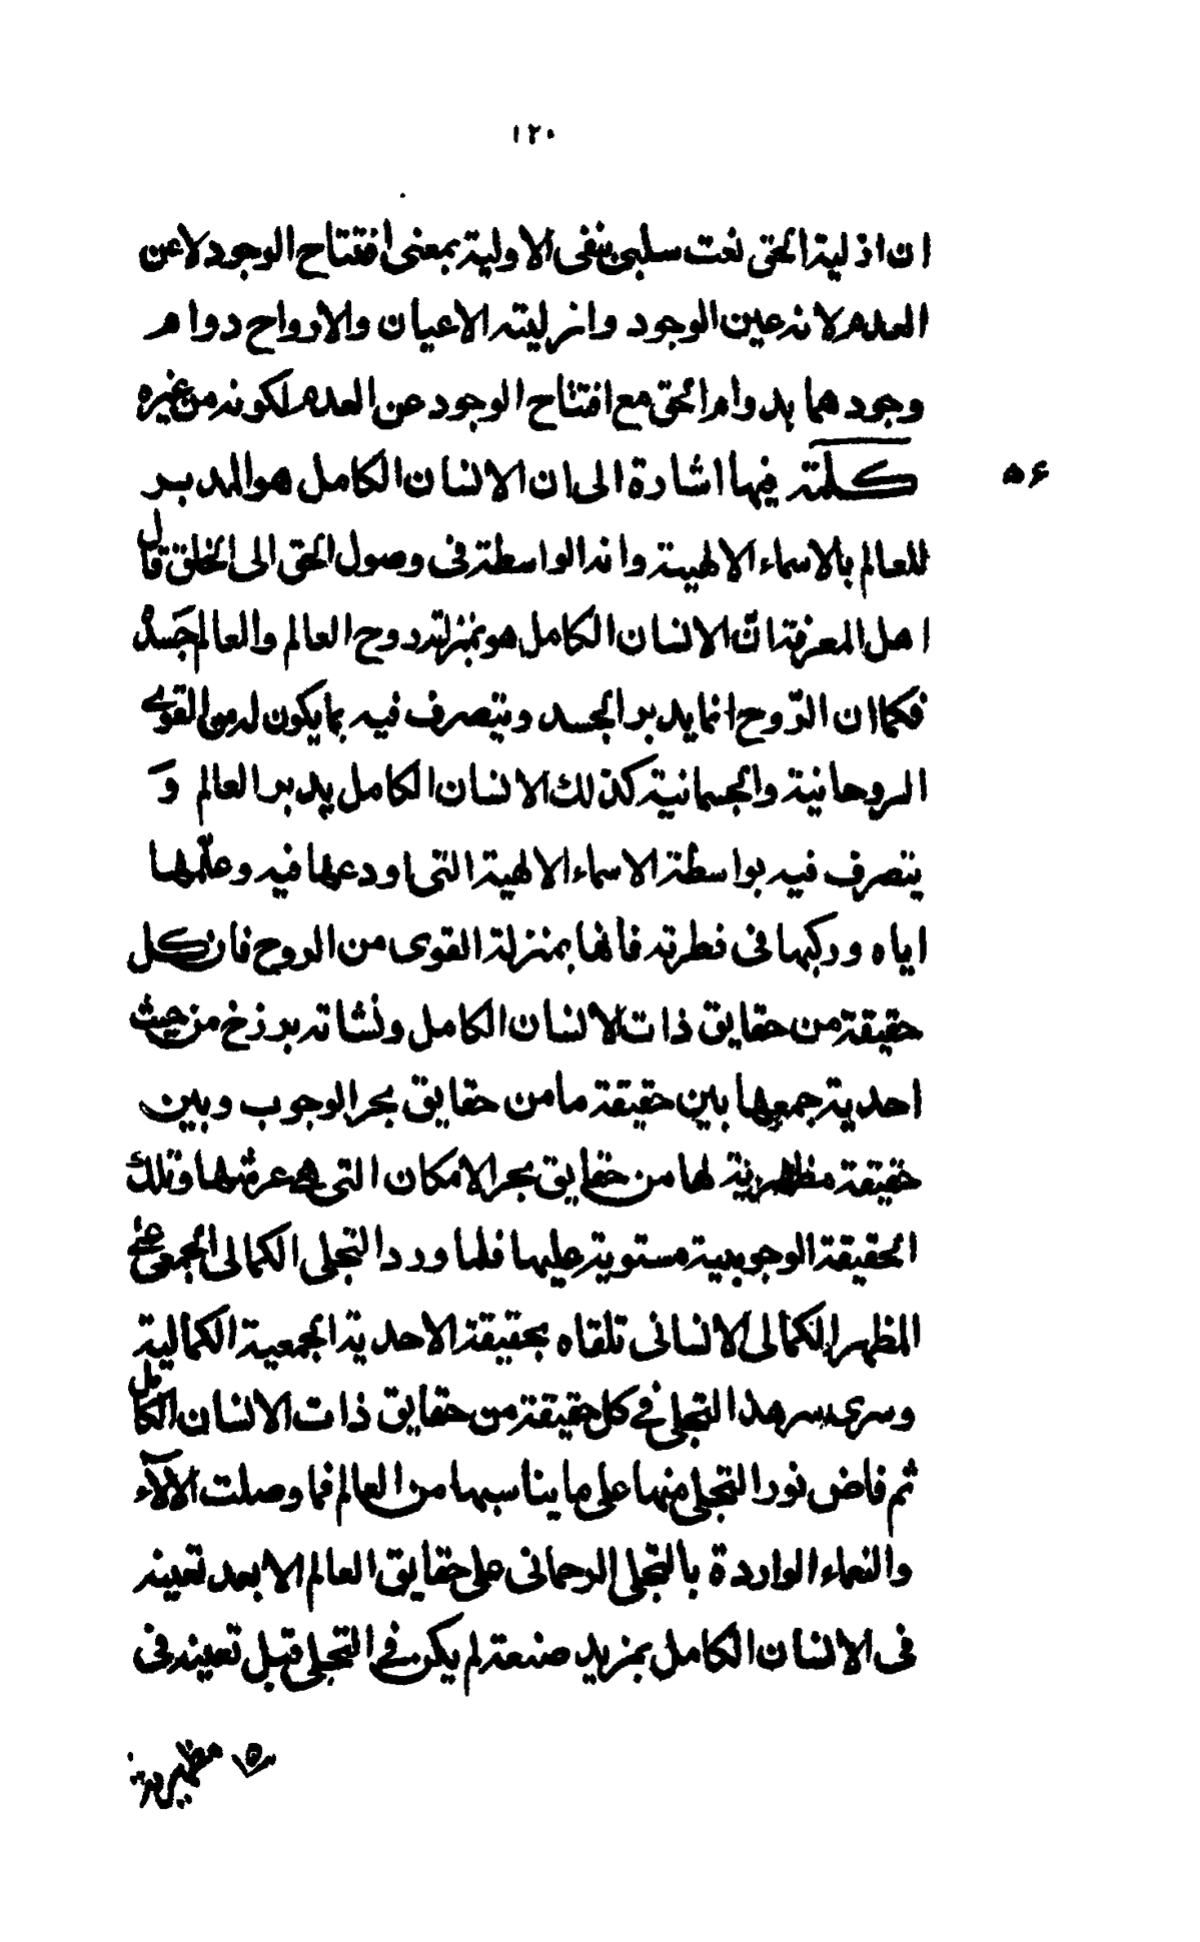 ١٢٠
ان ازلية الحق نعت سلبى ينفى الاولية بمعنى افتتاح الوجود لا عن
العدم لانه عين الوجود وازلية الاعيان والارواح دوام
وجودهما بدوام الحق مع افتتاح الوجود عن العدم لكونه من غيره
۵۶ كلمة فيها اشارة الى ان الانسان الكامل هو المدبر
للعالم بالاسماء الالهية وانه الواسطة فى وصول الحق الى الخلق قال
اهل المعرفة انّ الانسان الكامل هو بمنزلة روح العالم والعالم جَسدُه
فكما ان الرّوح انما يدبر الجسد ويتصرف فيه بما يكون له من القوى
الروحانية والجسمانية كذلك الانسان الكامل يدبر العالم وَ
يتصرف فيه بواسطة الاسماء الالهية التى اودعها فيه وعلّمها
اياه وركبها فى فطرته فانها بمنزلة القوى من الروح فان كل
حقيقة من حقايق ذات الانسان الكامل ونشاته برزخ من حيث
احدية جمعها بين حقيقة ما من حقايق بحر الوجوب وبين
حقيقة مظهرية لها من حقايق بحر الامكان التى هى عرشها وتلك
الحقيقة الوجوبية مستوية عليها فلما ورد التجلى الكمالى الجمعى على
المظهر الكمالى الانسانى تلقاه بحقيقة الاحدية الجمعية الكمالية
وسرى سر هذا التجلى فى كل حقيقة من حقايق ذات الانسان الكامل
ثم فاض نور التجلى منها على ما يناسبها من العالم فما وصلت الآلآء
والنعماء الواردة بالتجلى الرحمانى على حقايق العالم الا بعد تعينه
فى الانسان الكامل بمزيد صنعة لم يكن فى التجلى قبل تعينه فى
مظهرية